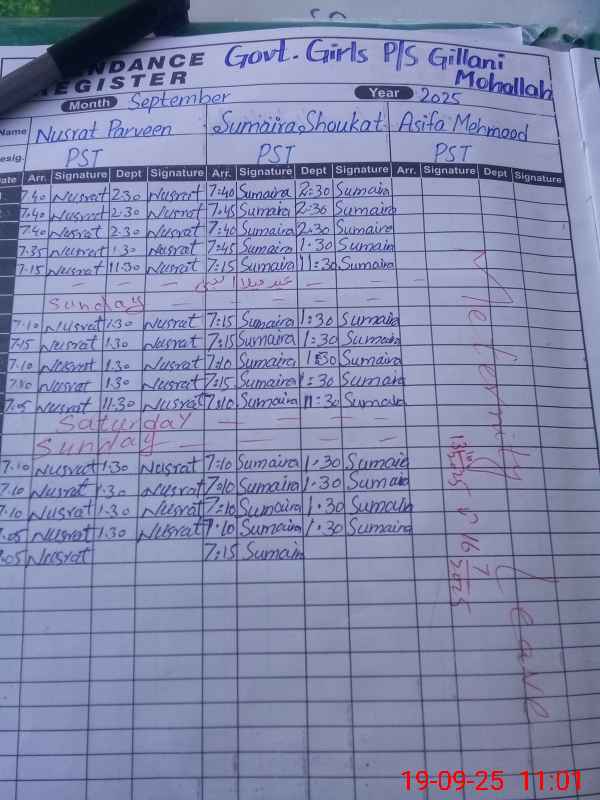 NDANCE Govt. Girls P/S Gillani
REGISTER Mohallah
Month September Year 2025
Name Nusrat Parveen Sumaira Shoukat Asifa Mehmood
esig. PST PST PST
ate Arr. Signature Dept Signature Arr. Signature Dept Signature Arr. Signature Dept Signature
7.40 Nusrat 2.30 Nusrat 7:40 Sumaira 2:30 Sumaira
7.40 Nusrat 2.30 Nusrat 7:45 Sumaira 2:30 Sumaira
7.40 Nusrat 2.30 Nusrat 7:40 Sumaira 2:30 Sumaira
7.35 Nusrat 1.30 Nusrat 7:45 Sumaira 1.30 Sumaira
7.15 Nusrat 11.30 Nusrat 7:15 Sumaira 11:30 Sumaira
عید میلاد النبی
Sunday
7.10 Nusrat 1.30 Nusrat 7:15 Sumaira 1:30 Sumaira
7.15 Nusrat 1.30 Nusrat 7:15 Sumaira 1:30 Sumaira
7.10 Nusrat 1.30 Nusrat 7:10 Sumaira 1:30 Sumaira
7.10 Nusrat 1.30 Nusrat 7:15 Sumaira 1:30 Sumaira
7.05 Nusrat 11.30 Nusrat 7:10 Sumaira 11:30 Sumaira
Saturday
Sunday
7.10 Nusrat 1.30 Nusrat 7:10 Sumaira 1.30 Sumaira
7.10 Nusrat 1.30 Nusrat 7:10 Sumaira 1.30 Sumaira
7.10 Nusrat 1.30 Nusrat 7:10 Sumaira 1.30 Sumaira
7.05 Nusrat 1.30 Nusrat 7.10 Sumaira 1.30 Sumaira
7.05 Nusrat 7:15 Sumaira
Meternity Leave
19-09-25 11:01